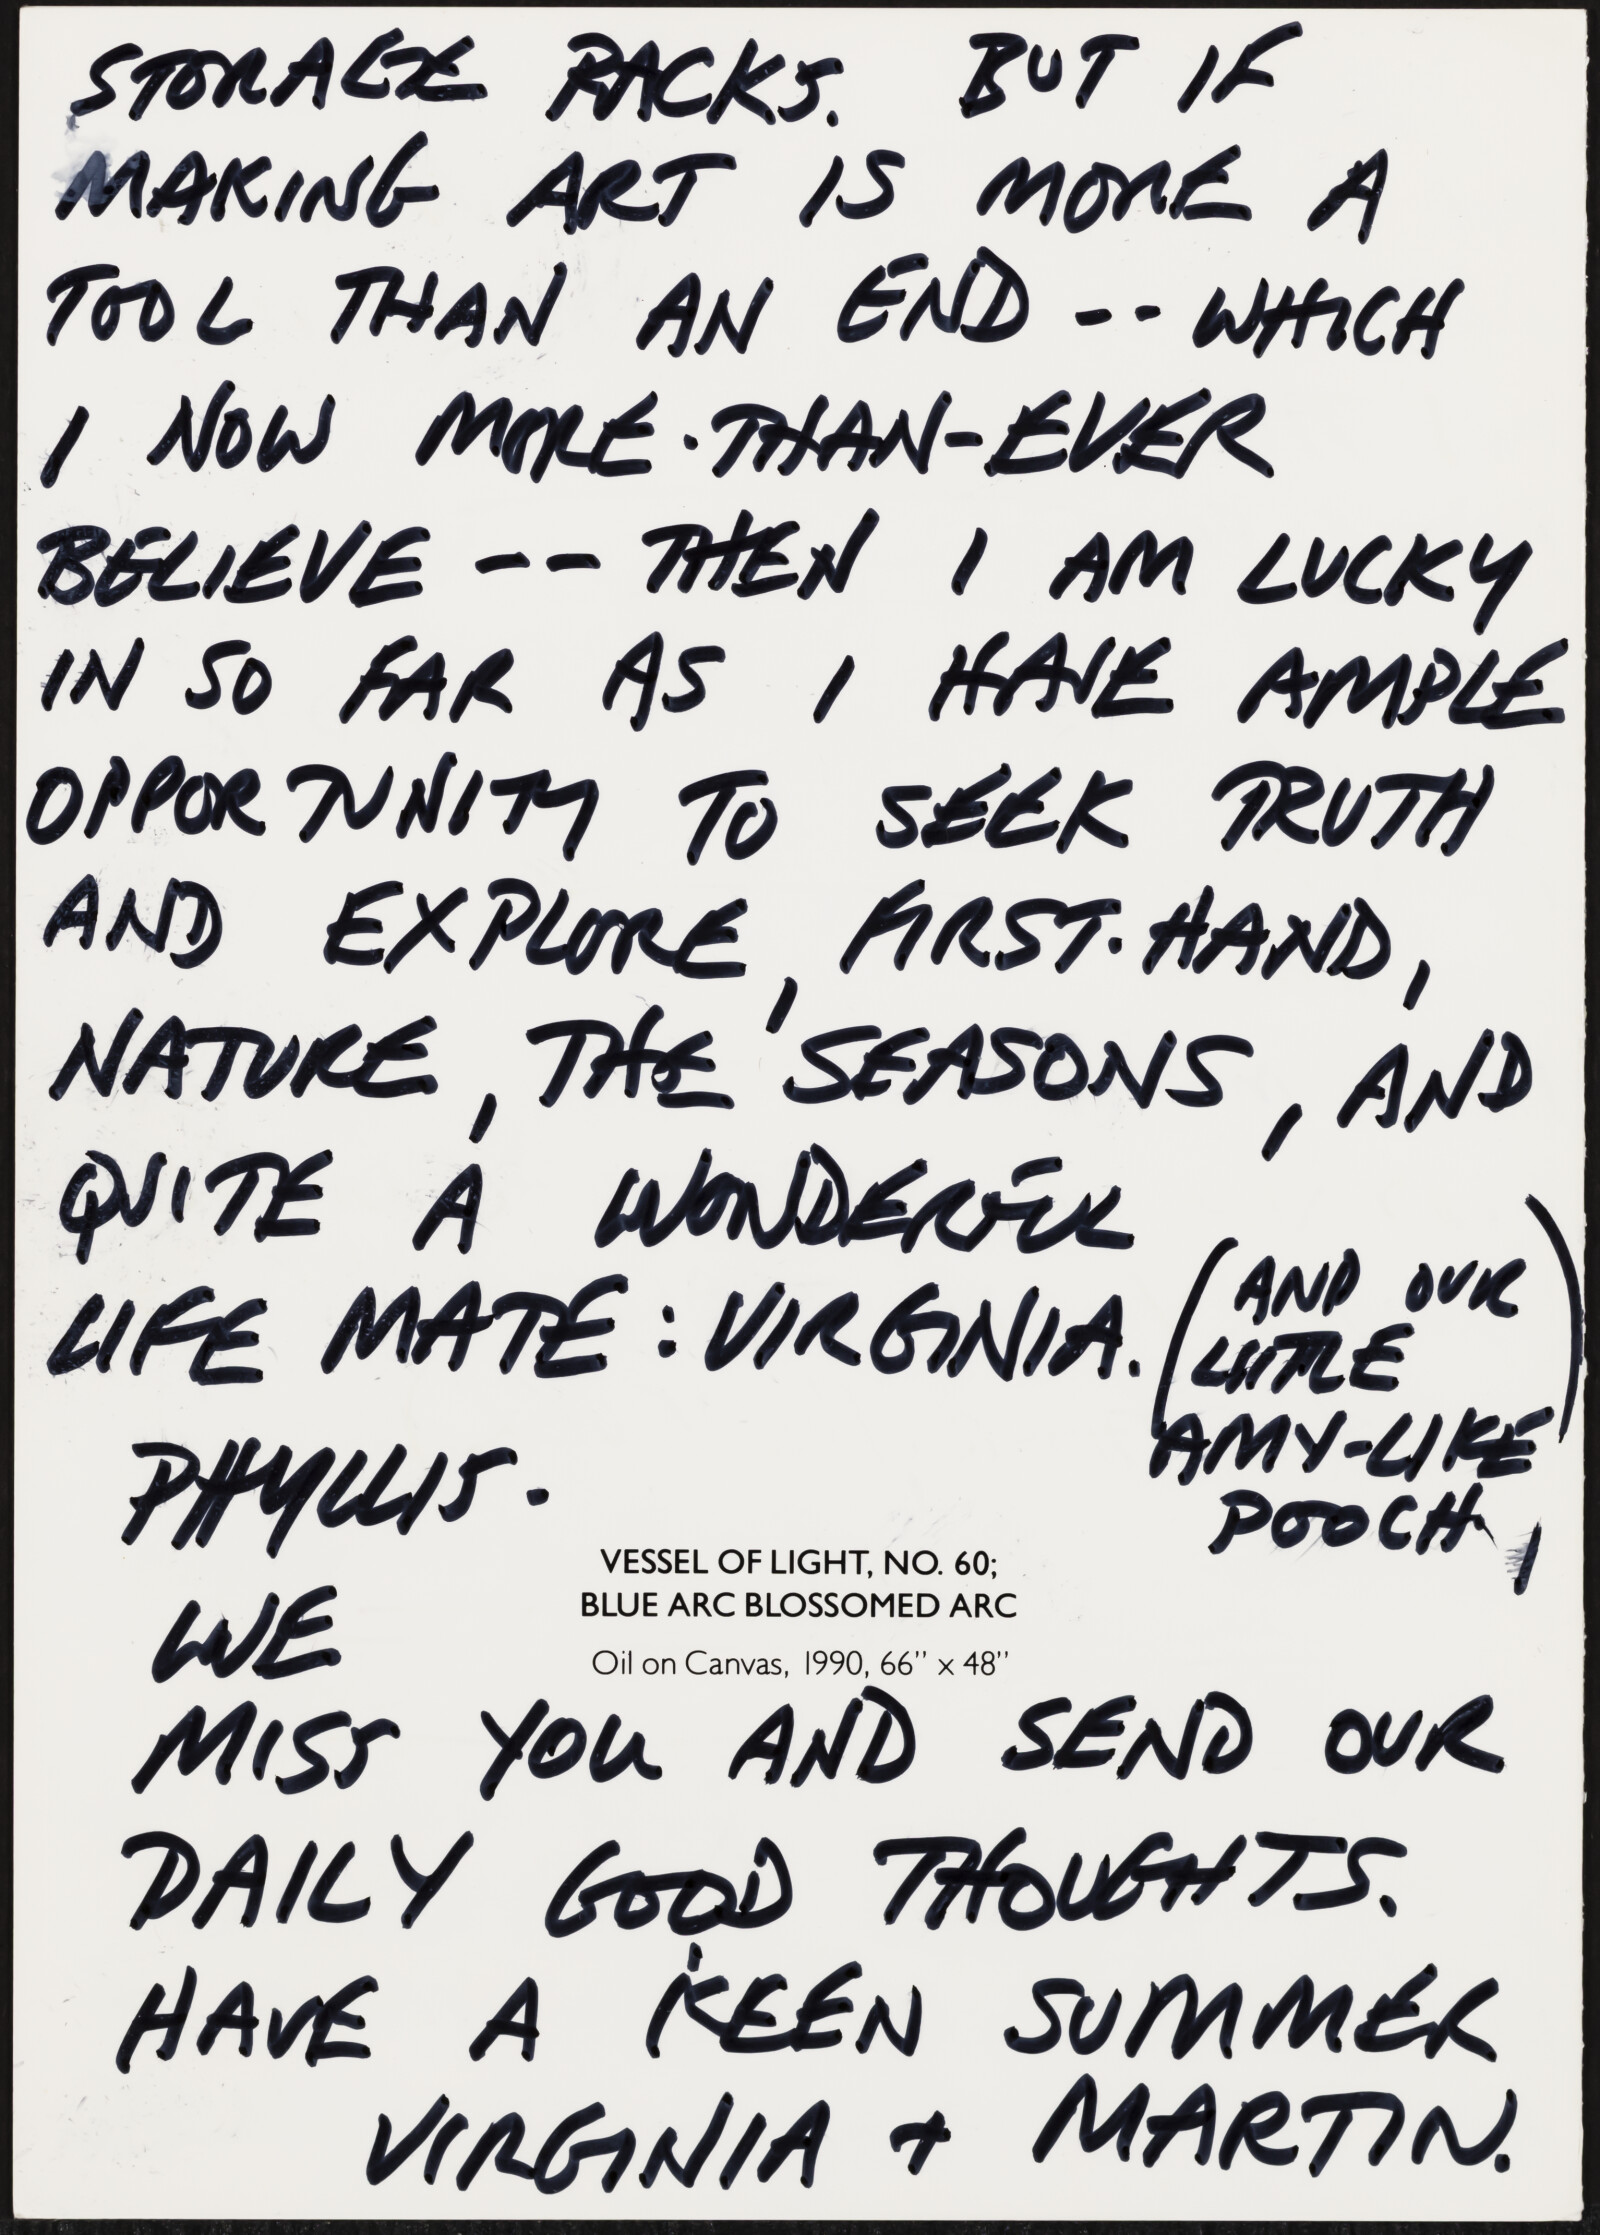 STORAGE RACKS. BUT IF
MAKING ART IS MORE A
TOOL THAN AN END -- WHICH
I NOW MORE-THAN-EVER
BELIEVE -- THEN I AM LUCKY
IN SO FAR AS I HAVE AMPLE
OPPORTUNITY TO SEEK TRUTH
AND EXPLORE, FIRST-HAND,
NATURE, THE SEASONS, AND
QUITE A WONDERFUL
LIFE MATE: VIRGINIA.
(AND OUR
LITTLE
AMY-LIKE
POOCH)
PHYLLIS -
VESSEL OF LIGHT, NO. 60;
BLUE ARC BLOSSOMED ARC
Oil on Canvas, 1990, 66" x 48"
WE
MISS YOU AND SEND OUR
DAILY GOOD THOUGHTS.
HAVE A KEEN SUMMER
VIRGINIA + MARTIN.